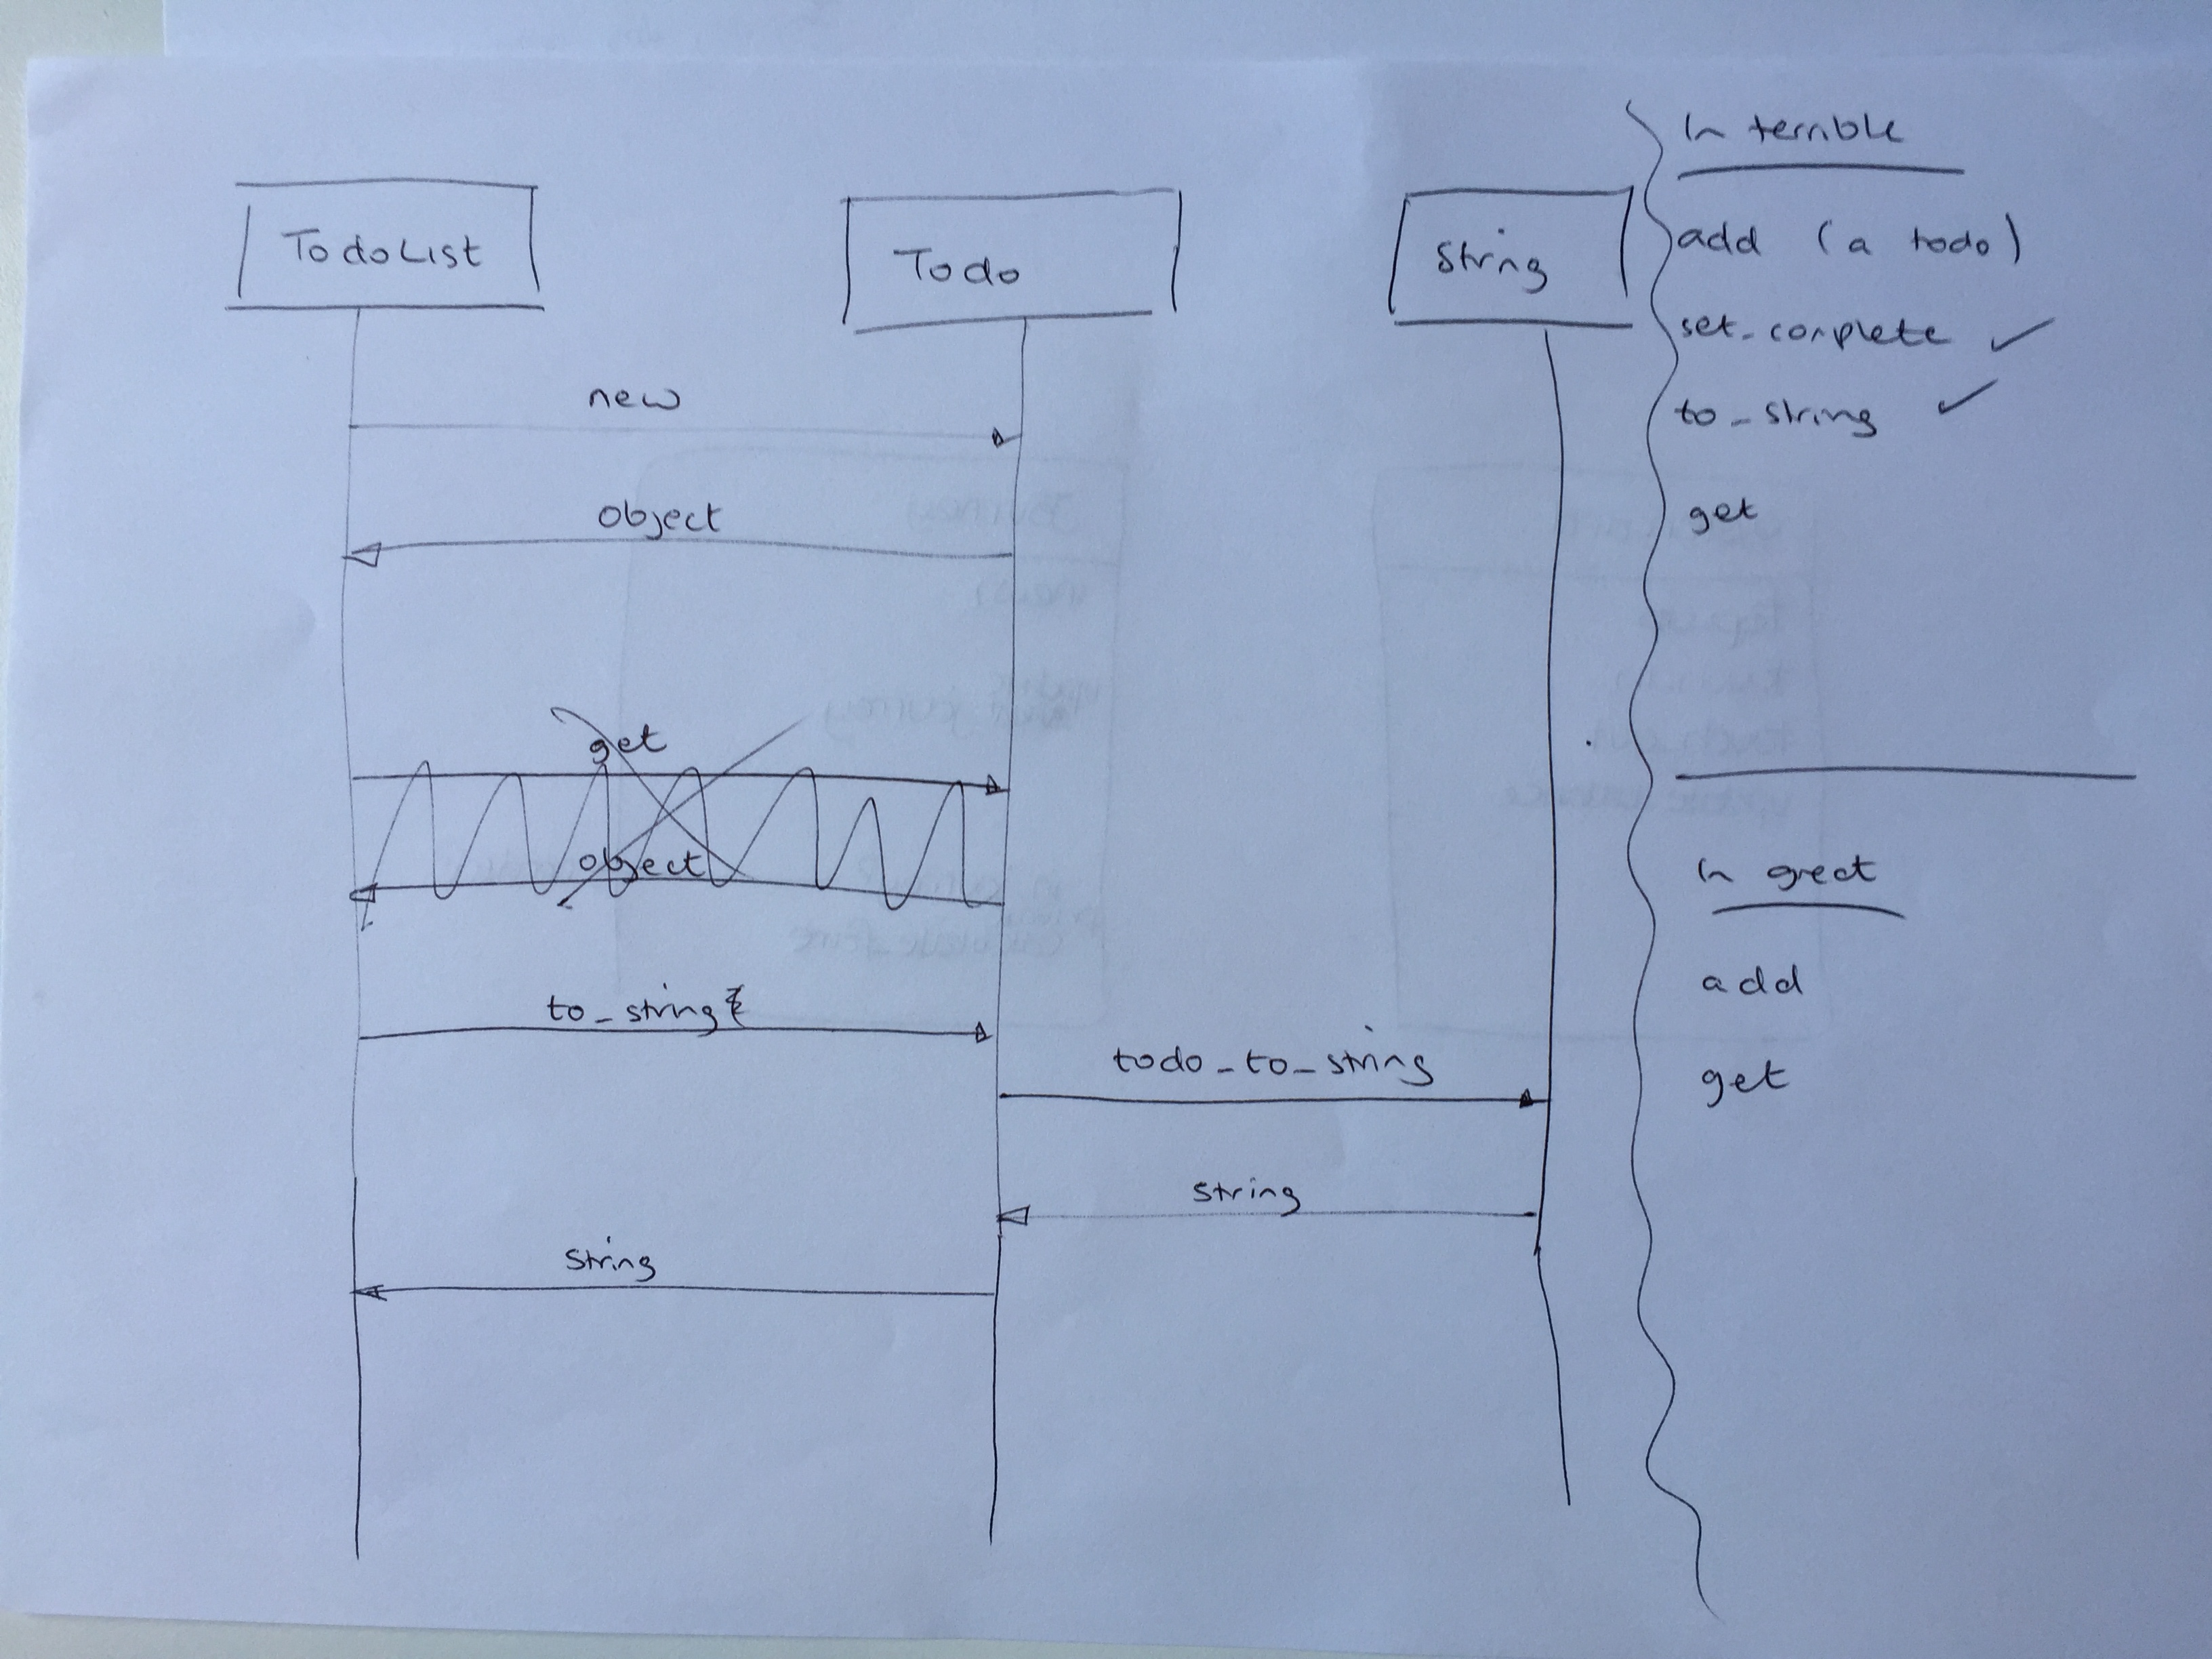 TodoList
Todo
String
new
object
get
object
to_string
todo_to_string
string
string
In terrible
add (a todo)
set_complete ✓
to_string ✓
get
In great
add
get